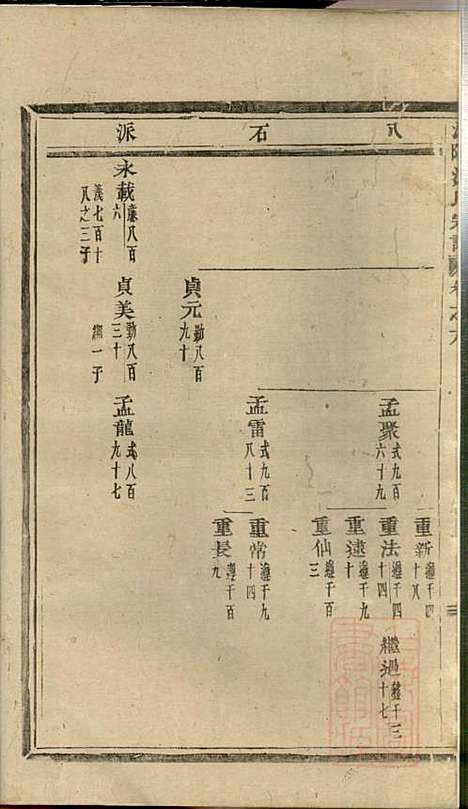 八石派
重新 遵千四十八
孟聚 式九百六十九
重法 遵千四十四
繼迴 千三十七
重逑 遵千九十
重仙 遵千百三
孟雷 式九百八十三
重常 遵千九十四
重長 遵千百九
貞元 勤八百九十
永載 廉八百六
義七百十八之三子
貞美 勤八百三十
繼一子
孟龍 式八百九十七